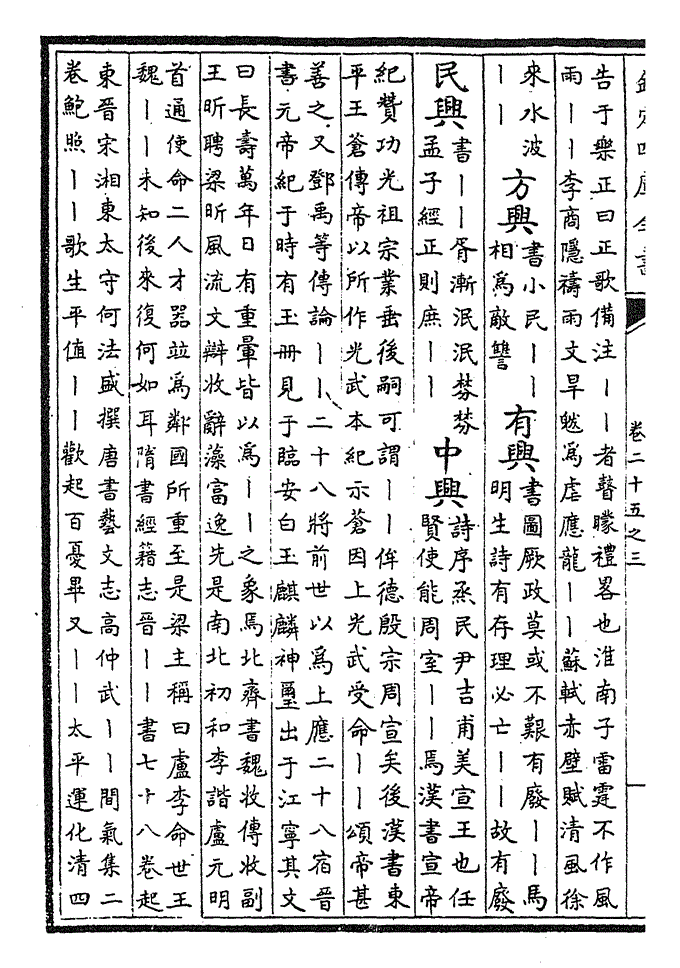 欽定四庫全書
卷二十五之三
告于樂正曰正歌備注丨丨者瞽矇禮畧也淮南子雷霆不作風
雨丨丨李商隱禱雨文旱魃爲虐應龍丨丨蘇軾赤壁賦清風徐
來水波
丨丨
方興
書小民丨丨
相爲敵讐
有興
書圖厥政莫或不艱有廢丨丨馬
明生詩有存理必亡丨丨故有廢
民興
書丨丨胥漸泯泯棼棼
孟子經正則庶丨丨
中興
詩序烝民尹吉甫美宣王也任
賢使能周室丨丨焉漢書宣帝
紀贊功光祖宗業垂後嗣可謂丨丨侔德殷宗周宣矣後漢書東
平王蒼傳帝以所作光武本紀示蒼因上光武受命丨丨頌帝甚
善之又鄧禹等傳論丨丨二十八將前世以爲上應二十八宿晉
書元帝紀于時有玉冊見于臨安白玉麒麟神璽出于江寧其文
曰長壽萬年日有重暈皆以爲丨丨之象焉北齊書魏收傳收副
王昕聘梁昕風流文辯收辭藻富逸先是南北初和李諧盧元明
首通使命二人才器竝爲鄰國所重至是梁主稱曰盧李命世王
魏丨丨未知後來復何如耳隋書經籍志晉丨丨書七十八卷起
東晉宋湘東太守何法盛撰唐書藝文志高仲武丨丨間氣集二
卷鮑照丨丨歌生平值丨丨歡起百憂畢又丨丨太平運化清四